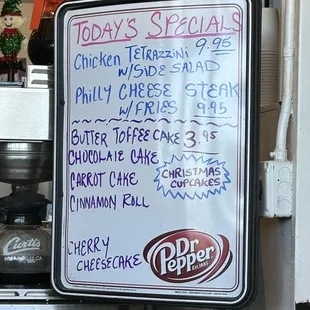 TODAY'S SPECIALS
Chicken TETRAZZINI 9.95
W/SIDE SALAD
PHILLY CHEESE STEAK
W/FRIES 9.95
BUTTER TOFFEE CAKE 3.95
CHOCOLATE CAKE
CARROT CAKE
CHRISTMAS
CUPCAKES
CINNAMON ROLL
CHERRY
CHEESECAKE
Dr Pepper
Curtis